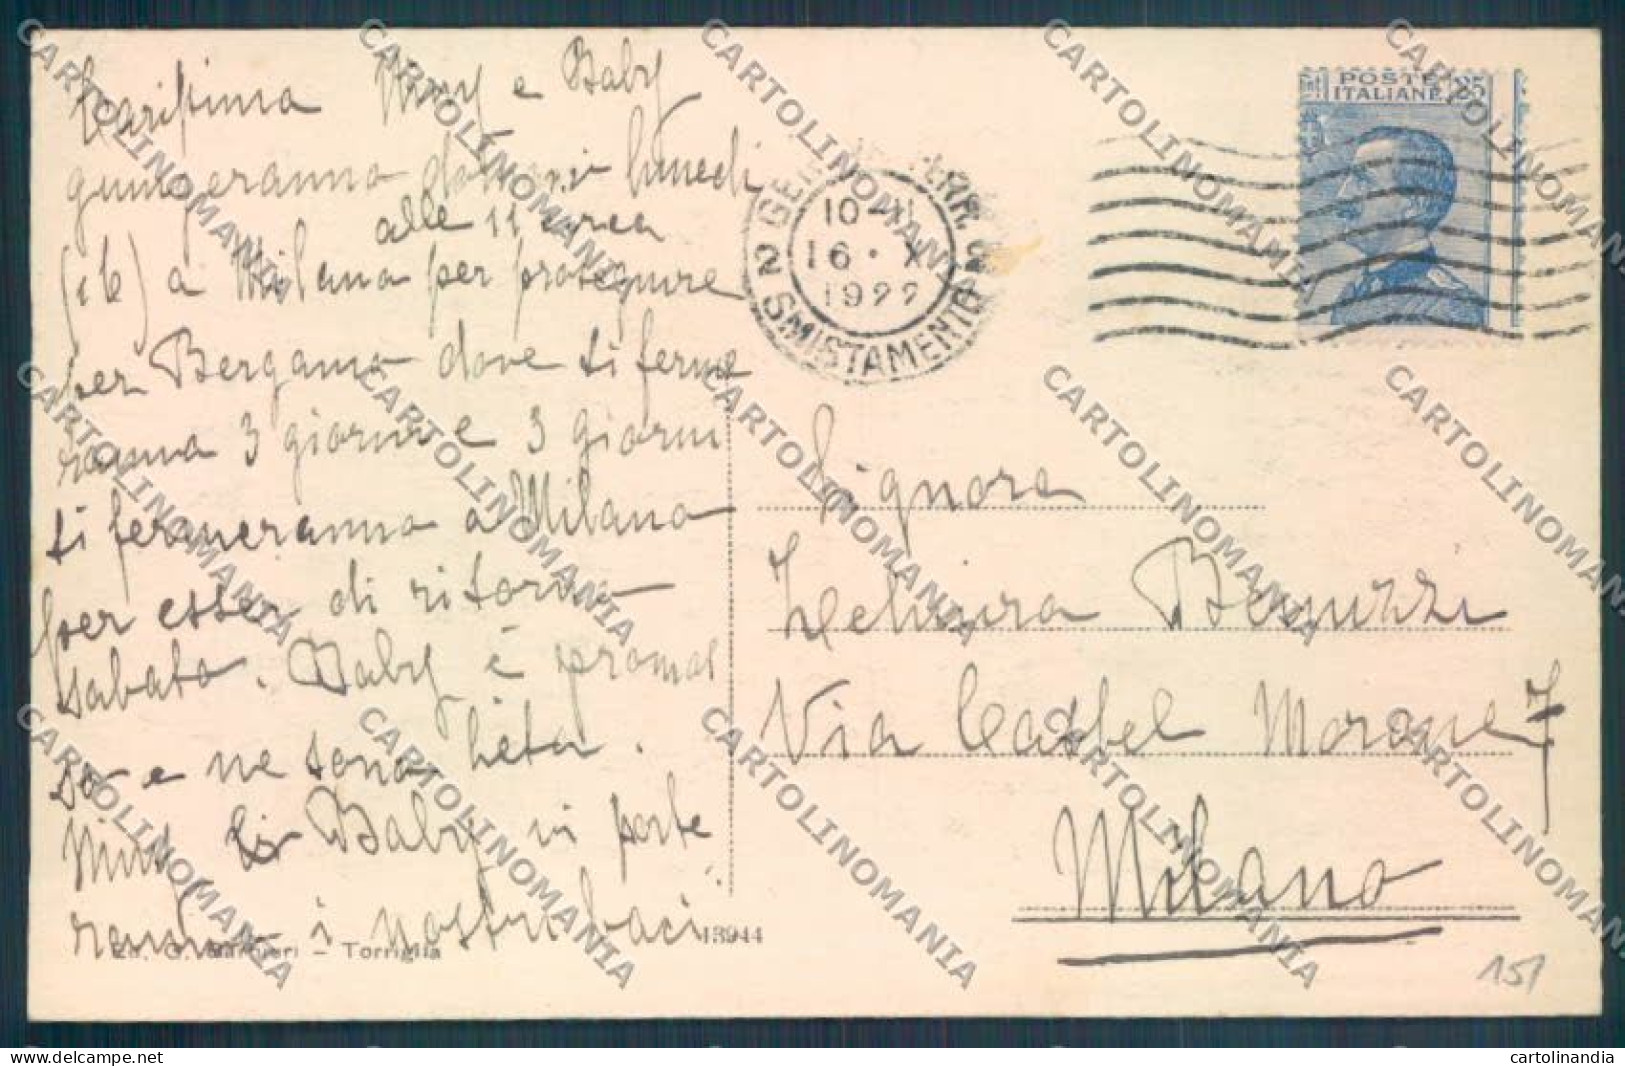 Carissima Niny e Baby
giungeranno domani lunedì
alle 11 circa
(16) a Milano per proseguire
per Bergamo dove si ferme
ranno 3 giorni e 3 giorni
si fermeranno a Milano
per esser di ritorno
sabato. Baby è promos
so e ne sono lieta.
Niny e Baby vi porte
ranno i nostri baci
Ed. G. - Torriglia
13944
POSTE
ITALIANE 25
FERR.
10-11
16 · X
1922
2 SMISTAMENTO
Signora
Zelmira Benuzzi
Via Castel Morone 7
Milano
15/
CARTOLINOMANIA
www.delcampe.net
cartolinandia